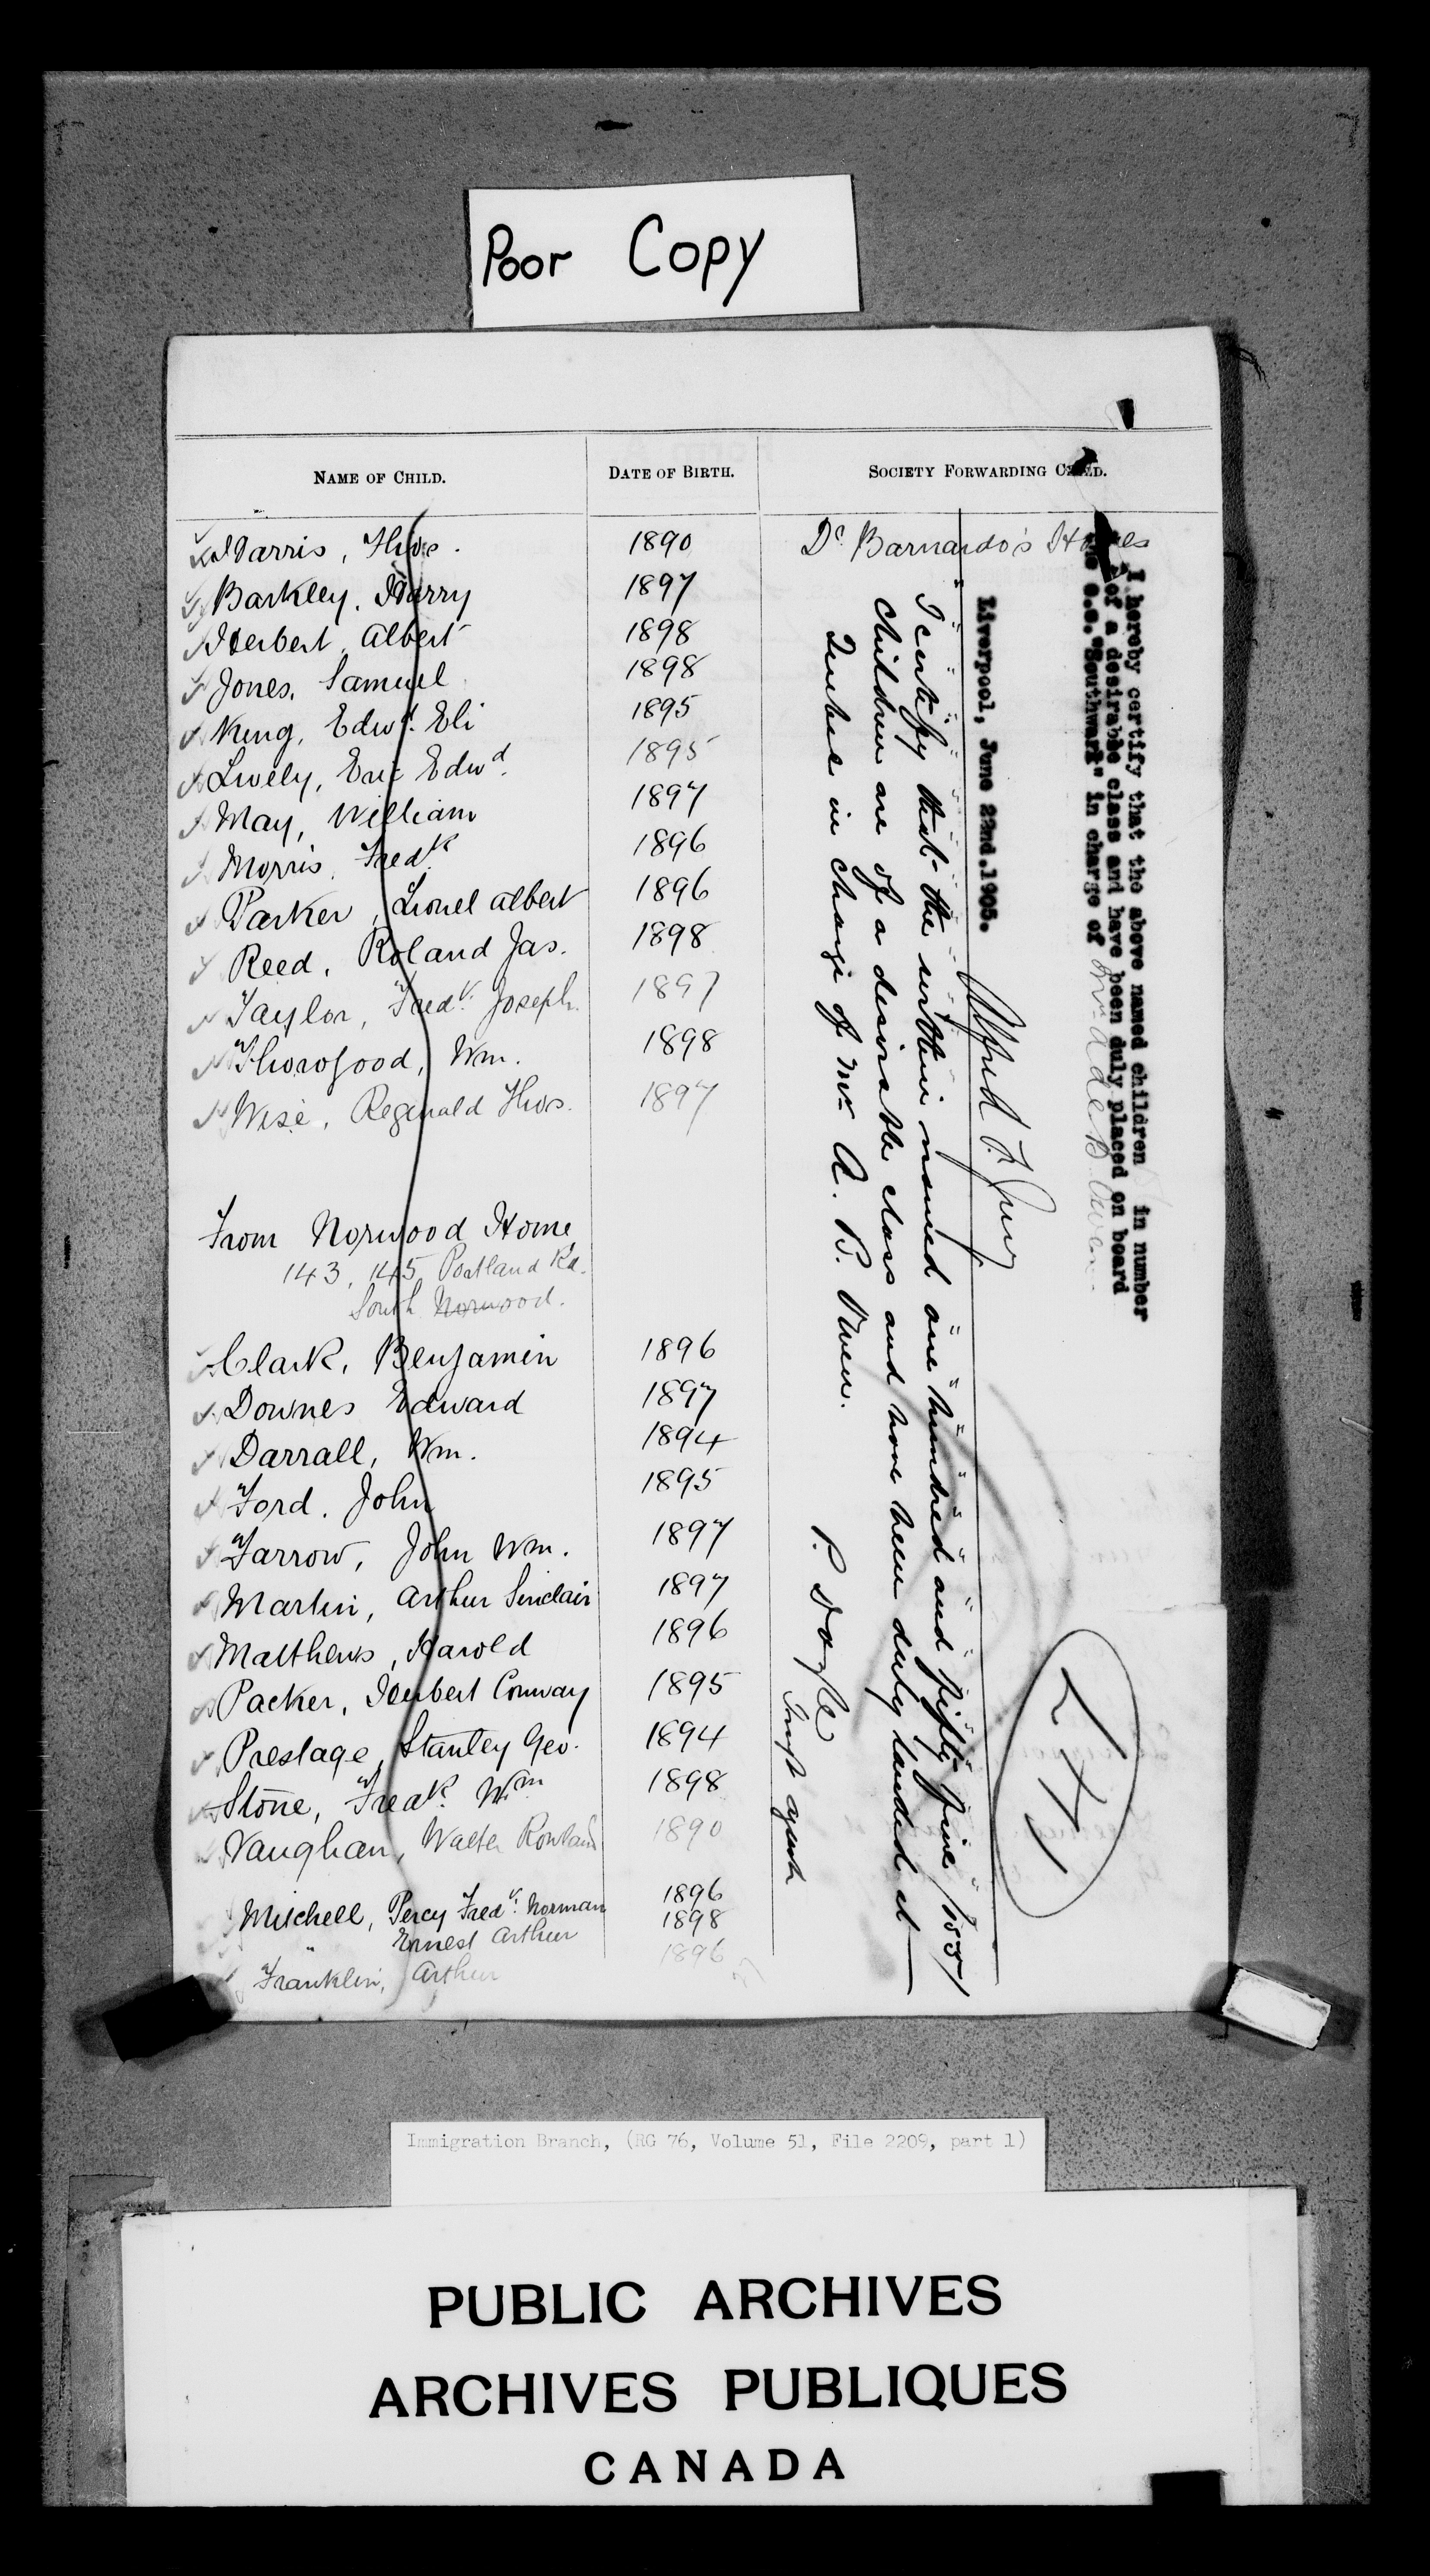 Poor Copy
NAME OF CHILD. DATE OF BIRTH. SOCIETY FORWARDING CHILD.
Harris, Thos. 1890 Dr. Barnardo's Homes
Barkley, Harry 1897 "
Herbert, Albert 1898 "
Jones, Samuel 1898 "
King, Edwd. Eli 1895 "
Lively, Eric Edwd. 1895 "
May, William 1897 "
Morris, Fredk. 1896 "
Parker, Lionel Albert 1896 "
Reed, Roland Jas. 1898 "
Taylor, Fredk. Joseph 1897 "
Thorogood, Wm. 1898 "
Wise, Reginald Thos. 1897 "
From Norwood Home
143, 145 Portland Rd.
South Norwood.
Clark, Benjamin 1896 "
Downes Edward 1897 "
Darrall, Wm. 1894 "
Ford, John 1895 "
Farrow, John Wm. 1897 "
Martin, Arthur Sinclair 1897 "
Matthews, Harold 1896 "
Packer, Herbert Conway 1895 "
Prestage, Stanley Geo. 1894 "
Stone, Fredk. Wm 1898 "
Vaughan, Walter Rowland 1890
Mitchell, Percy Fredk. Norman 1896
" Ernest Arthur 1898
Franklin, Arthur 1896
I hereby certify that the above named children in number
of a desirable class and have been duly placed on board
the S.S. "Southwark" in charge of Mr A de B. Owen
Liverpool, June 22nd. 1905.
Alfred F. Jury
I certify that the within named one hundred and fifty five /155/
children are of a desirable class and have been duly landed at
Quebec in charge of Mr A. B. Owen.
P. Doyle
Imgt agent
Immigration Branch, (RG 76, Volume 51, File 2209, part 1)
PUBLIC ARCHIVES
ARCHIVES PUBLIQUES
CANADA